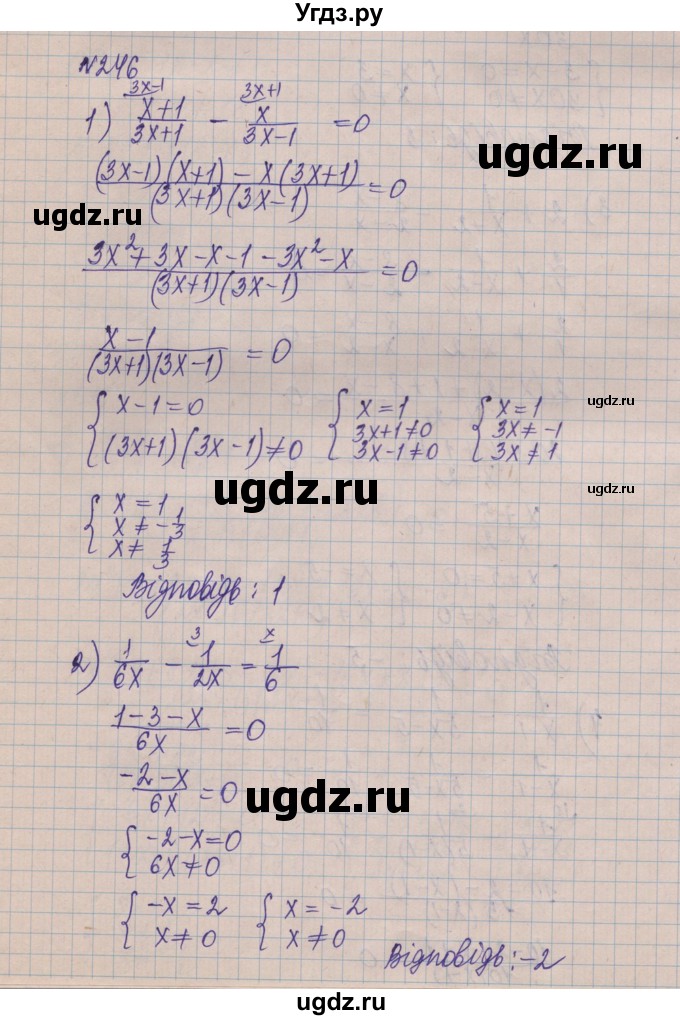 Угдз.ру
№246
3x-1 3x+1
1) x+1/3x+1 - x/3x-1 = 0
ugdz.ru
(3x-1)(x+1) - x(3x+1)/(3x+1)(3x-1) = 0
ugdz.ru
3x²+3x-x-1-3x²-x/(3x+1)(3x-1) = 0
x-1/(3x+1)(3x-1) = 0
{ x-1=0 { x=1 { x=1
(3x+1)(3x-1)≠0 3x+1≠0 3x≠-1
3x-1≠0 3x≠1
ugdz.ru
ugdz.ru
ugdz.ru
{ x=1
x≠-1/3
x≠1/3
Відповідь: 1
3 x
2) 1/6x - 1/2x = 1/6
1-3-x/6x = 0
-2-x/6x = 0
ugdz.ru
{ -2-x=0
6x≠0
{ -x=2 { x=-2
x≠0 x≠0
Відповідь: -2
ugdz.ru